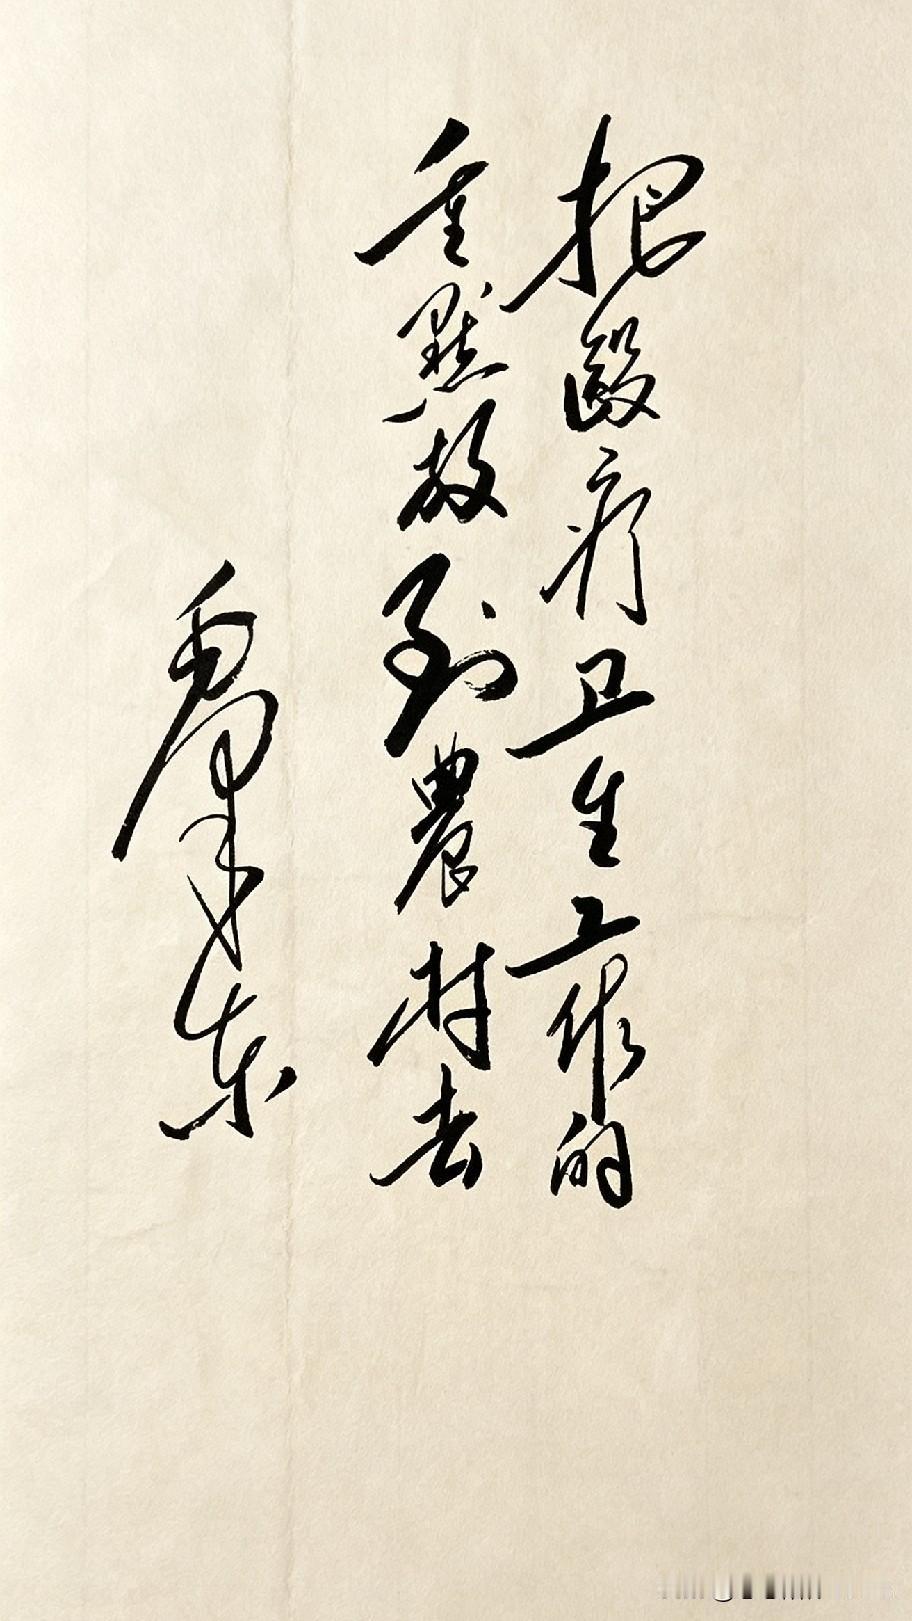 把医疗卫生工作的
重點放到農村去
毛泽东